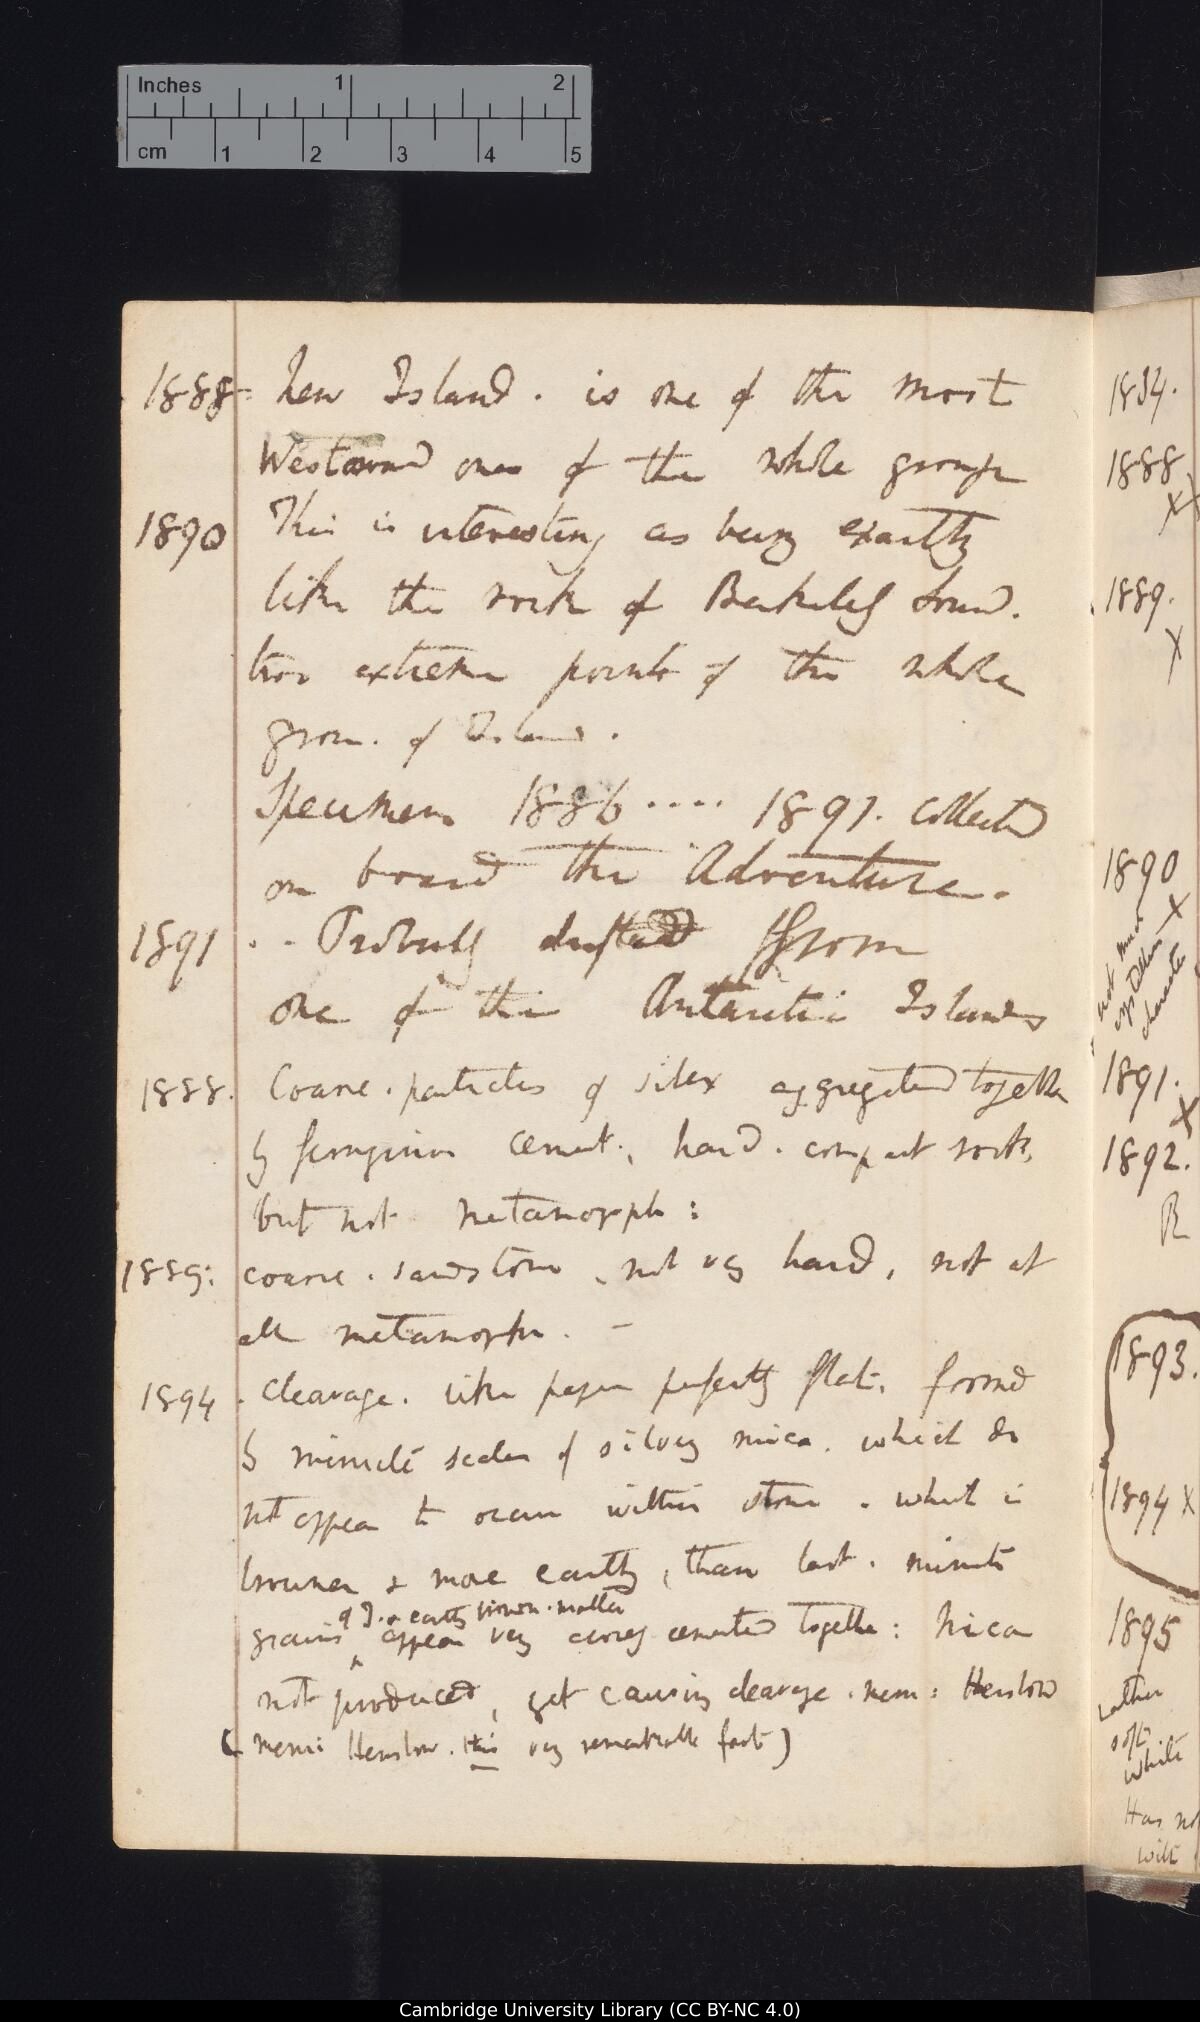 Inches 1 2
cm 1 2 3 4 5
1888. New Island. is one of the most
Westward ones of the whole group
1890 This is interesting as being exactly
like the rock of Berkeley Sound.
two extreme points of the whole
group. of Islands.
Specimens 1886 .... 1891. collected
on board the Adventure.
1891 .. Probably drifted from
one of the Antarctic Islands
1888. Coarse. particles of silex aggregated together
by ferruginous cement; hard. compact rock,
but not metamorph:
1889: coarse. sandstone, not very hard, not at
all metamorph. —
1894. cleavage. like paper perfectly flat. formed
by minute scales of silvery mica. which do
not appear to occur within stone. which is
browner & more earthy, than last. minute
of & earthy brown matter
grains appear very closely cemented together: Mica
not produced, yet causing cleavage. mem: Henslow
(mem: Henslow. this very remarkable fact)
1834.
1888
XX
1889.
X
1890
X
not much
crystalline
character
1891.
X
1892.
R
1893.
1894 X
1895
rather
soft
white
Has no
with
Cambridge University Library (CC BY-NC 4.0)